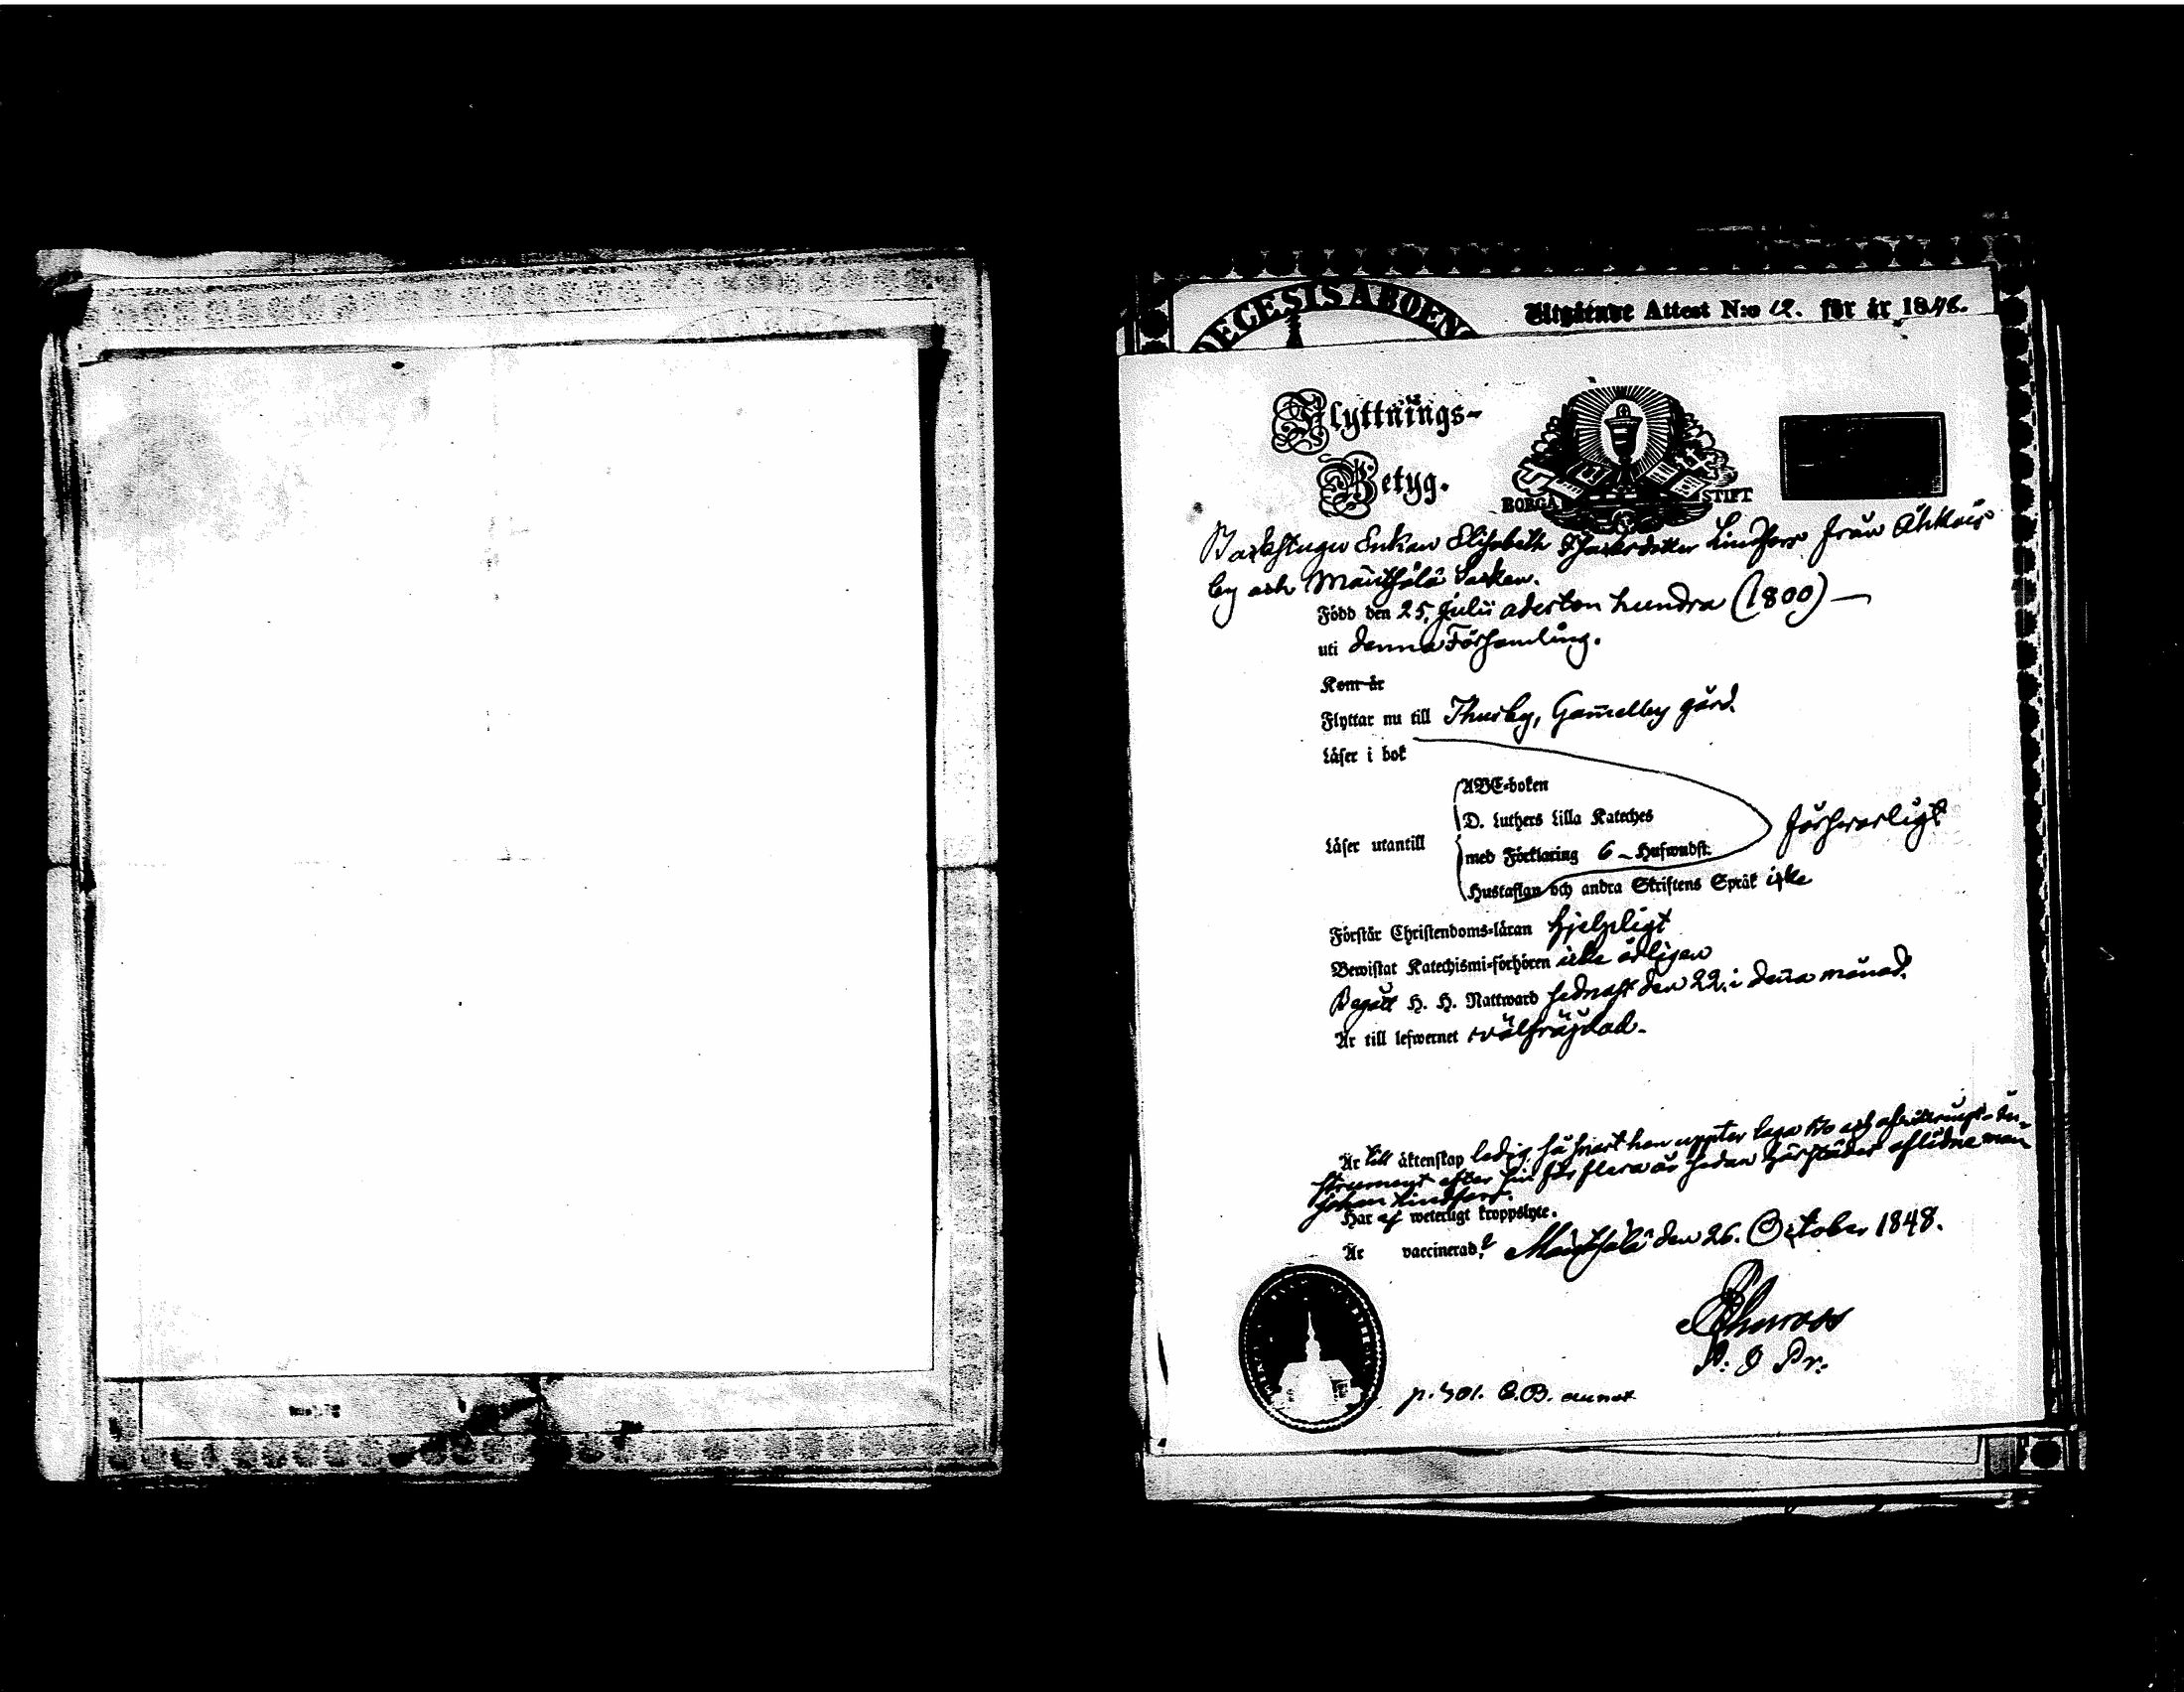 DECESIS ABOENS
Utgående Attest N:o 12. för år 1848.
Flyttnings-
Betyg.
BORGÅ STIFT
Backstugu Enkan Elisabeth Lindfors från
by och Mäntsälä Socken.
Född den 25. Julii aderton hundra (1800) —
uti denna Församling.
Kom år
Flyttar nu till Thusby, Gam̄elby gård.
Läser i bok
ABC-boken
D. Luthers Lilla Kateches
Läser utantill
med Förklaring 6 - Hufwudst.
försvarligt
Hustaflan och andra Skriftens Språk icke
Förstår Christendoms-läran hjelpligt
Bewistat Katechismi-förhören icke årligen
Begått H. H. Nattward sednast den 22. i den̄a månad.
Är till lefwernet välfräjdad.
Är till äktenskap ledig, så snart hon uppter laga bo och afvittrings-In-
strument efter sin för flera år sedan härstädes aflidne man
Johan Lindfors.
Har ej weterligt kroppslyte.
Är vaccinerad? Mäntsälä den 26. October 1848.
p. 301. C.B. annot